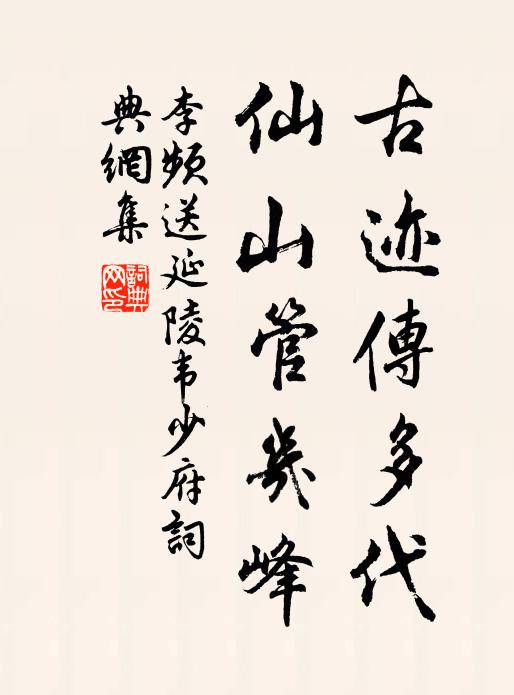 古迹傳多代
仙山管幾峰
李頻送延陵韦少府詞
典網集
詞典
网印